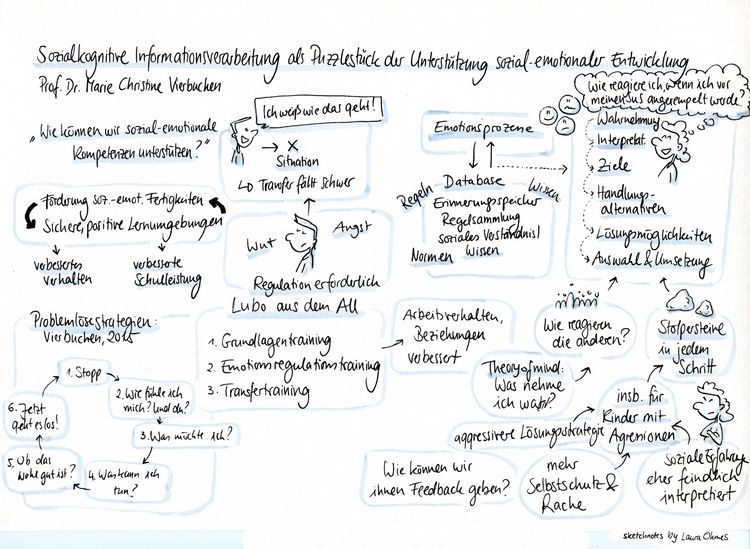 Sozialkognitive Informationsverarbeitung als Puzzlestück der Unterstützung sozial-emotionaler Entwicklung
Prof. Dr. Marie Christine Vierbuchen
„Wie können wir sozial-emotionale
Kompetenzen unterstützen?"
Förderung soz.-emot. Fertigkeiten
Sichere, positive Lernumgebungen
verbessertes
Verhalten
verbesserte
Schulleistung
Ich weiß wie das geht!
Situation
Transfer fällt schwer
Wut
Angst
Regulation erforderlich
Lubo aus dem All
1. Grundlagentraining
2. Emotionsregulationstraining
3. Transfertraining
Arbeitsverhalten,
Beziehungen
verbessert
Problemlösestrategien:
Vierbuchen, 2015
1. Stopp
2. Wie fühle ich
mich? und du?
3. Was möchte ich?
4. Was kann ich
tun?
5. Ob das
wohl gut ist?
6. Jetzt
geht es los!
Emotionsprozesse
Regeln
Database
Wissen
Erinnerungsspeicher
Regelsammlung
soziales Verständnis/
Normen
Wissen
Wie reagiere ich, wenn ich vor
meinen angerempelt werde?
Wahrnehmung
Interpretat.
Ziele
Handlungs-
alternativen
Lösungsmöglichkeiten
Auswahl & Umsetzung
Wie reagieren
die anderen?
Stolpersteine
in jedem
Schritt
Theory of mind:
Was nehme
ich wahr?
insb. für
Kinder mit
Aggressionen
aggressivere Lösungsstrategie
Wie können wir
ihnen Feedback geben?
mehr
Selbstschutz &
Rache
Soziale Erfahrung
eher feindlich
interpretiert
sketchnotes by Laura